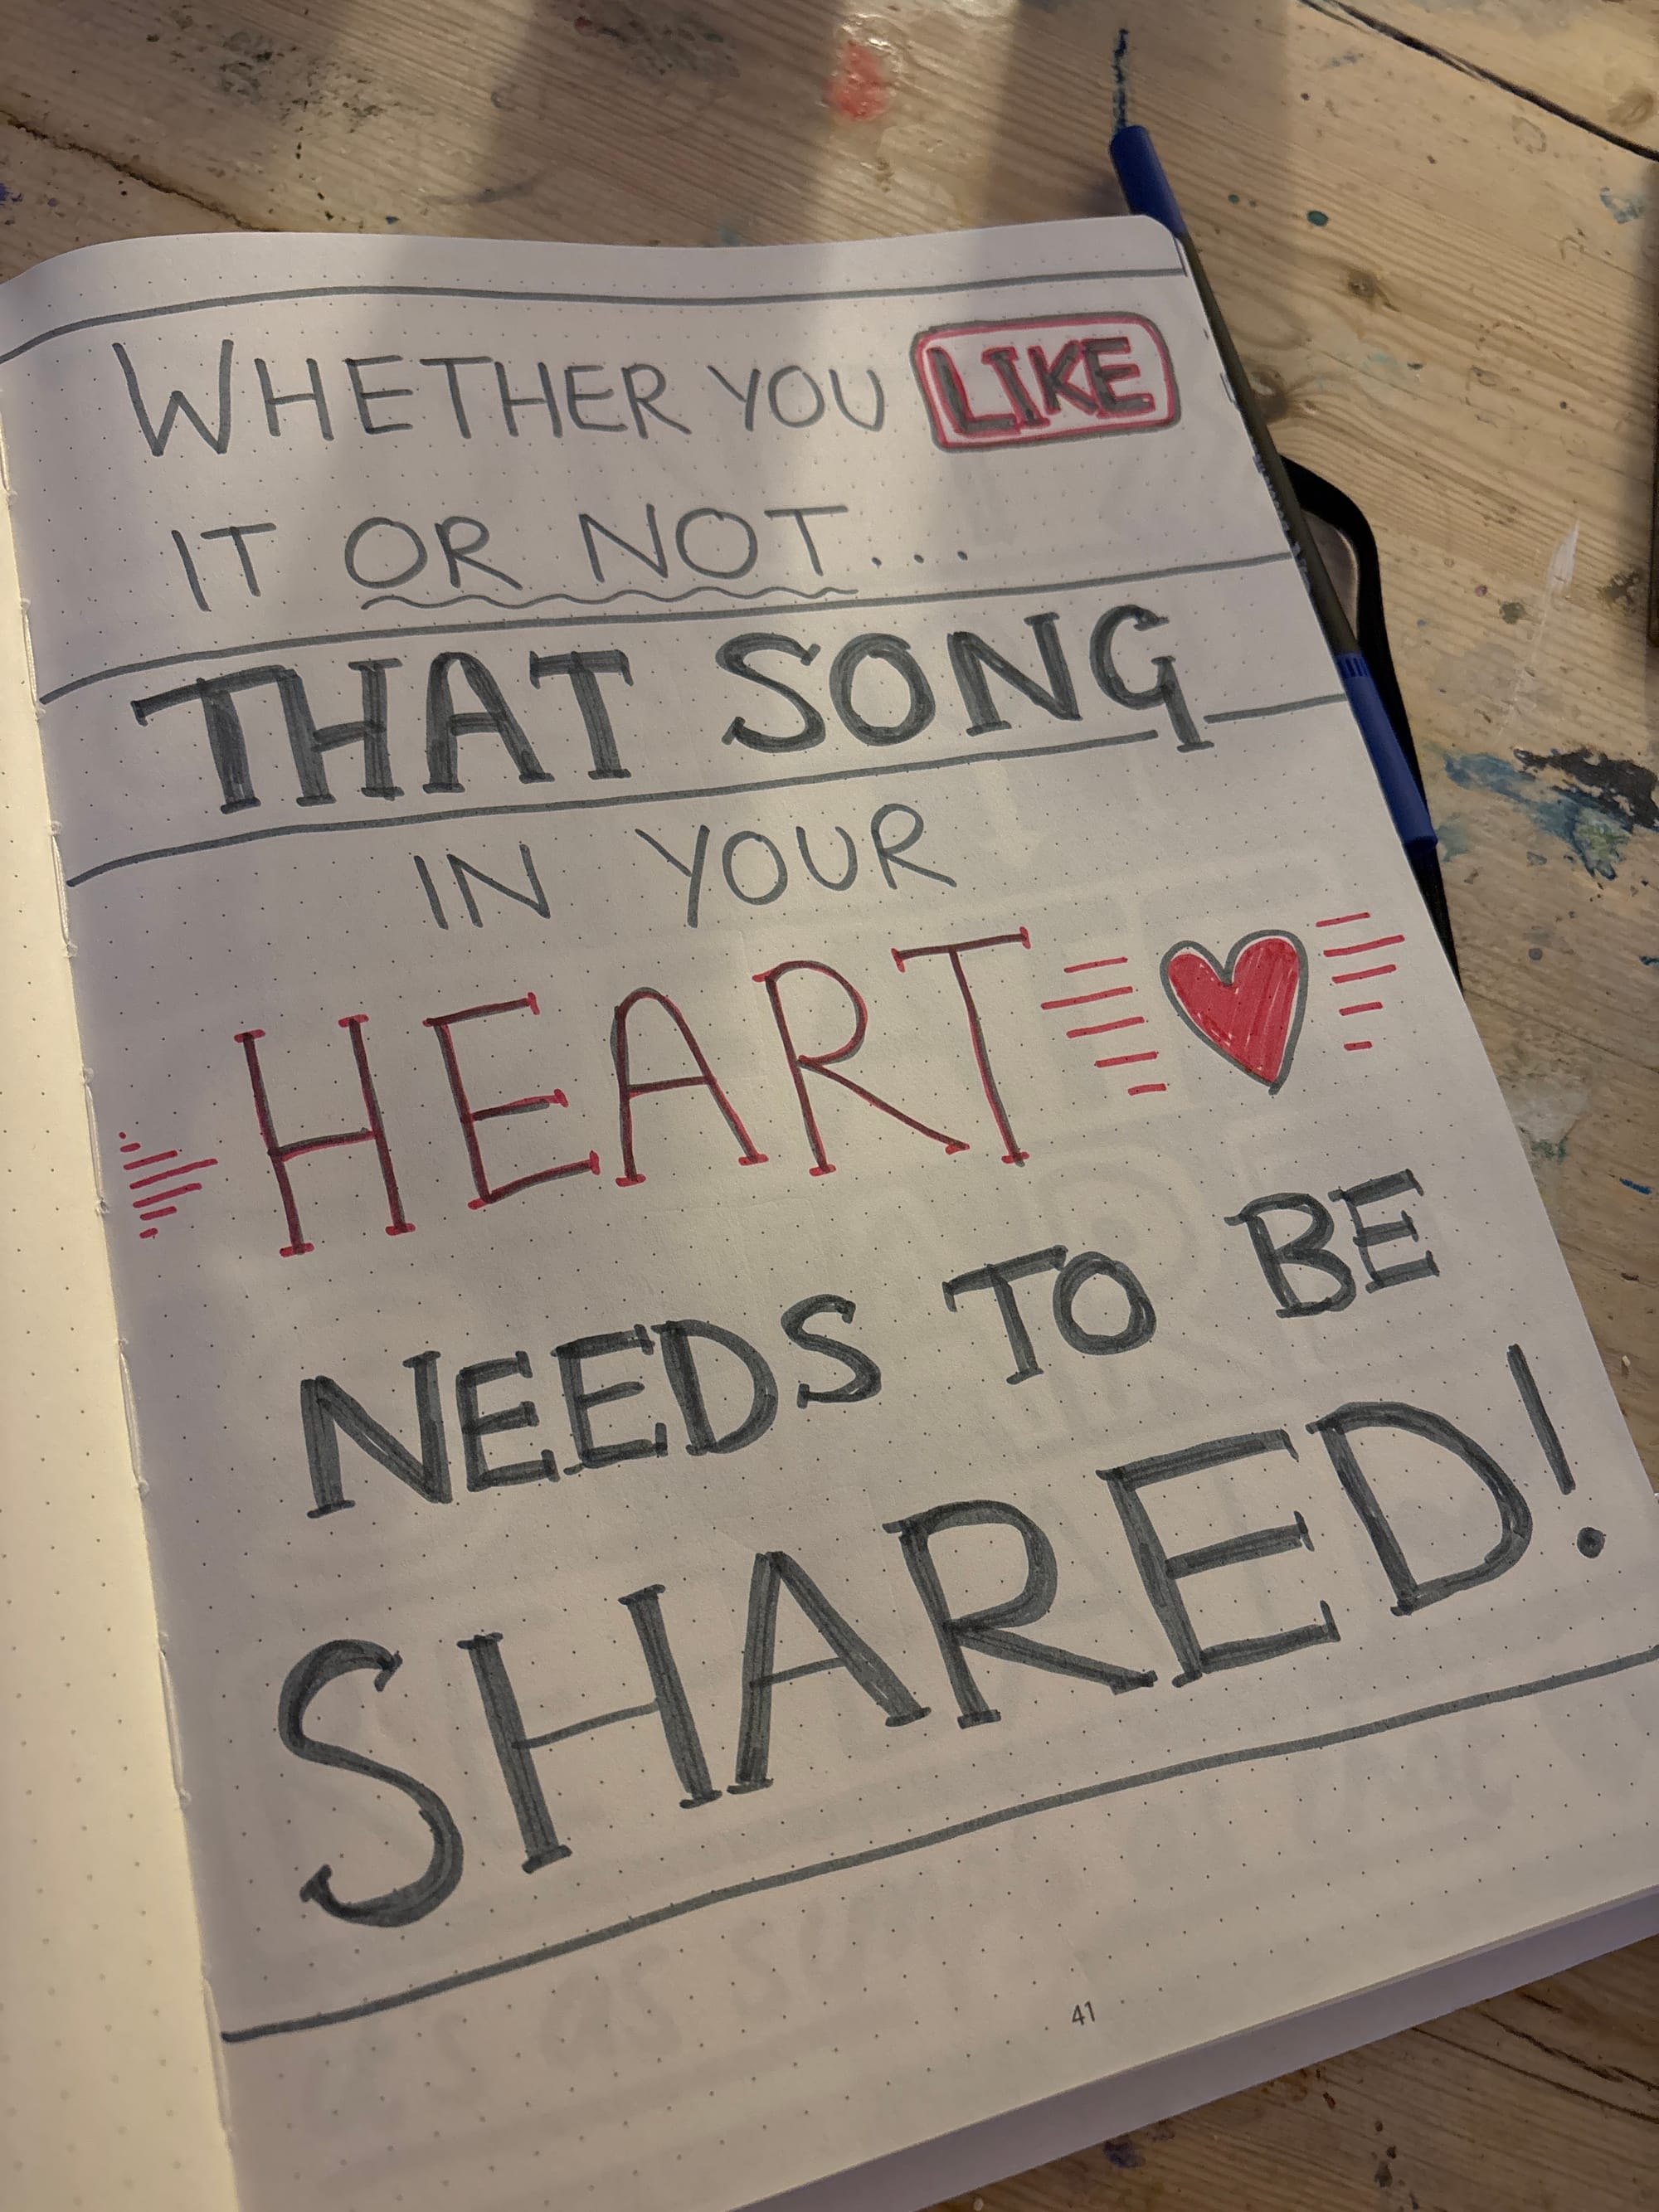 WHETHER YOU LIKE
IT OR NOT...
THAT SONG
IN YOUR
HEART
NEEDS TO BE
SHARED!
41